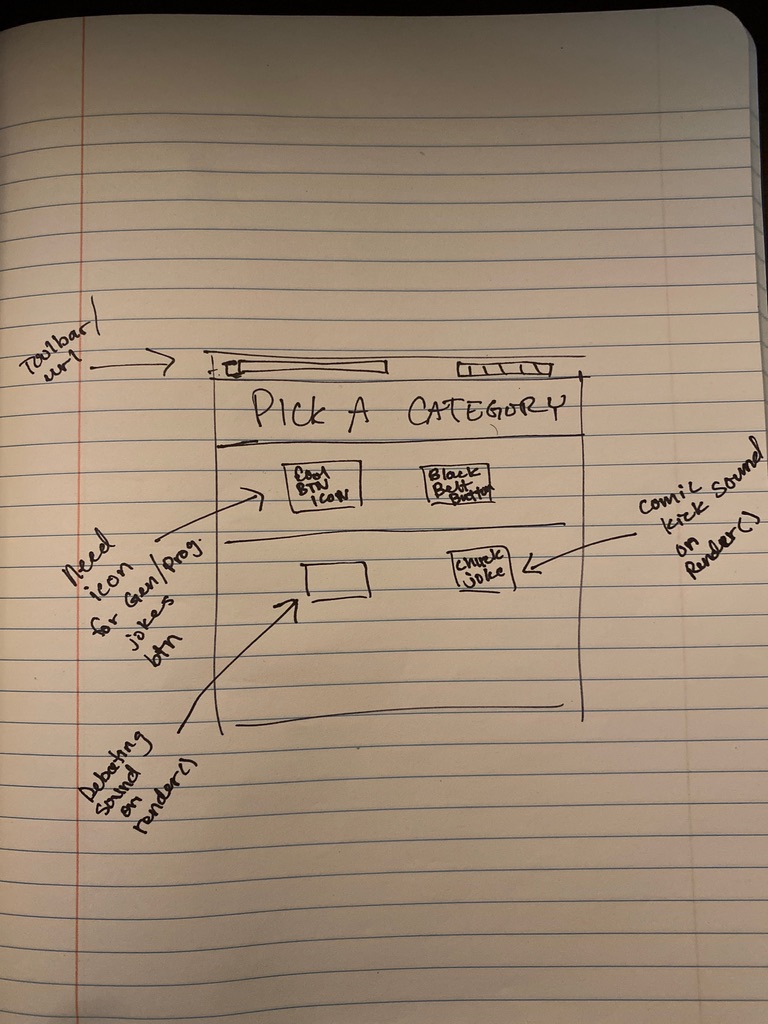 Toolbar/
url
PICK A CATEGORY
Cool
BTN
icon
Black
Belt
Button
Need
icon
for Gen/Prog.
jokes
btn
Chuck
joke
Comic
kick sound
on
Render()
Debating
sound
on
render()